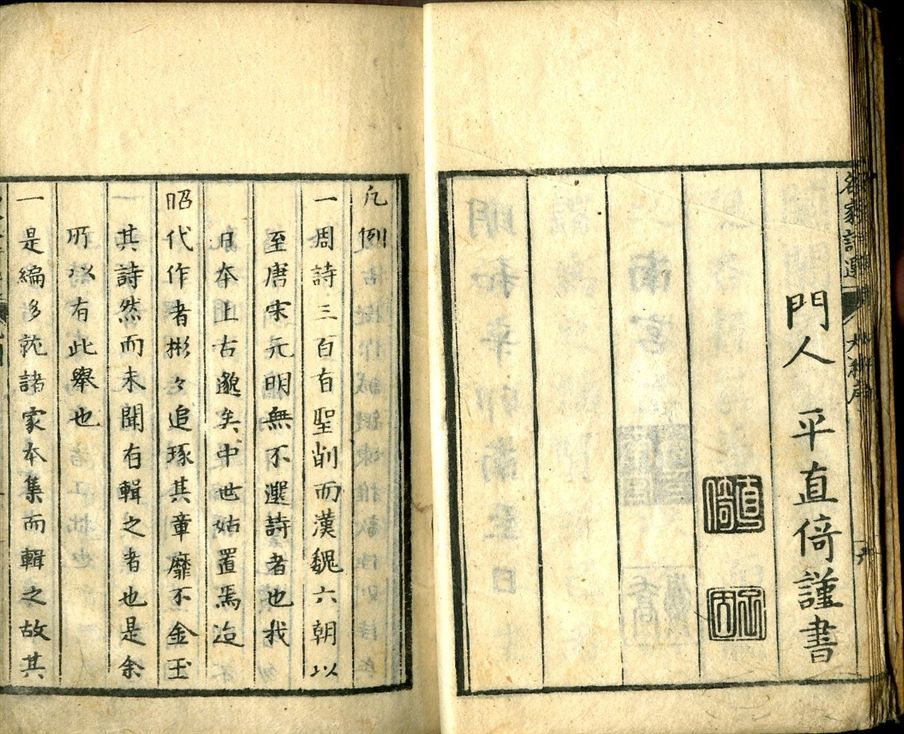 門人 平直倚謹書
直倚
凡例
一周詩三百有聖削而漢魏六朝以
至唐宋元明無不選詩者也我
日本上古邈矣中世姑置焉迨
昭代作者彬々追琢其章靡不金玉
其詩然而未聞有輯之者也是余
所以有此舉也
一是編多就諸家本集而輯之故其